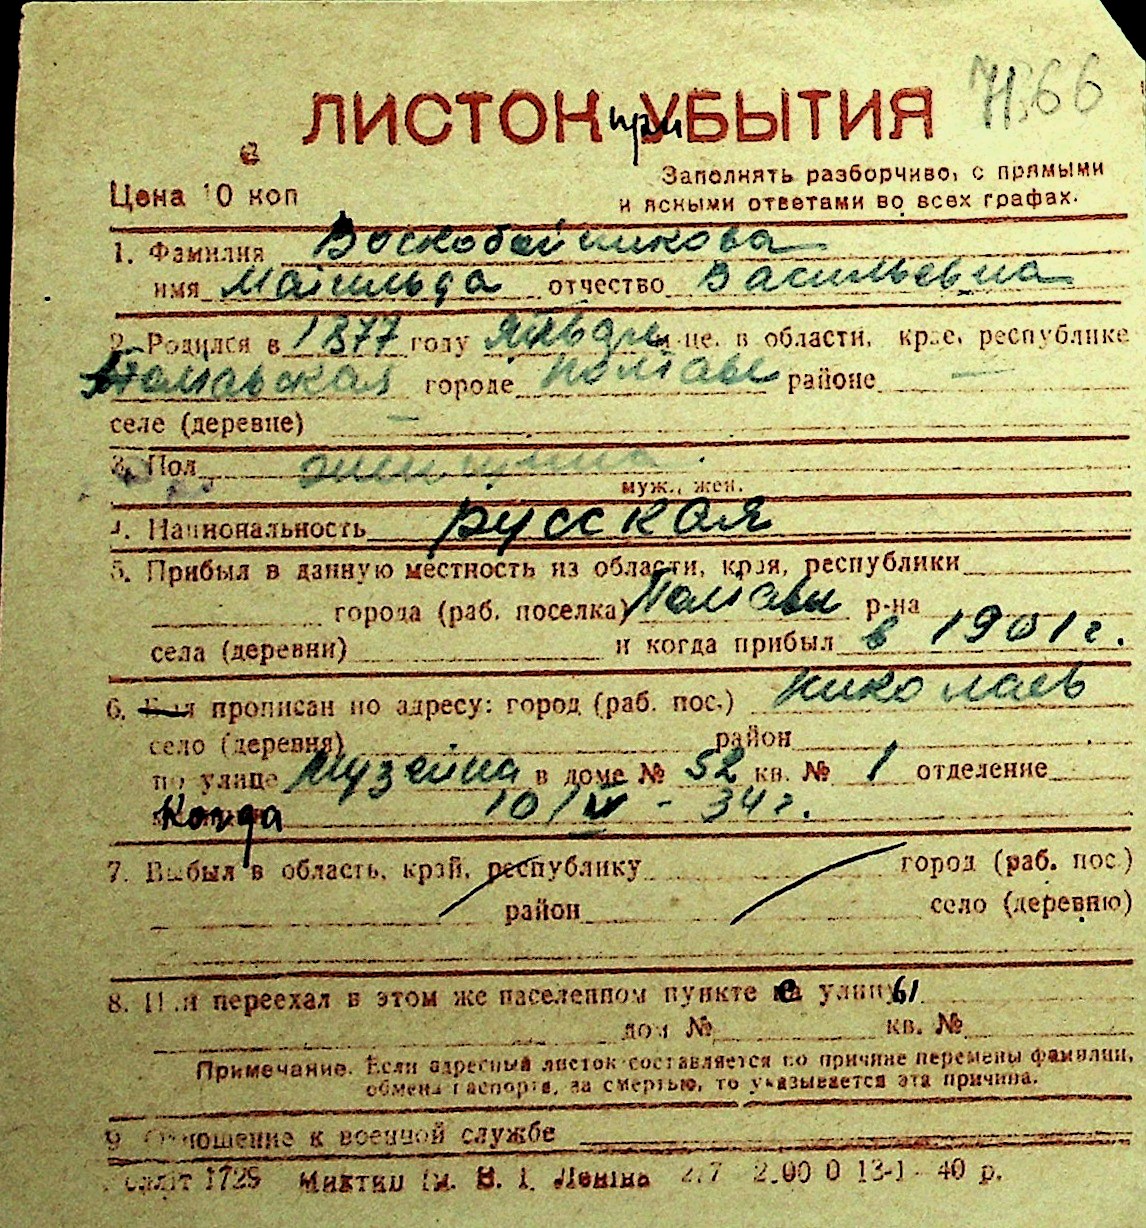 ЛИСТОК приУБЫТИЯ
Цена 10 коп
Заполнять разборчиво, с прямыми
и ясными ответами во всех графах.
1. Фамилия Воскобойникова
имя Матильда отчество Васильевна
2. Родился в 1877 году январ м-це. в области, крае, республике
Полтавская городе Полтаве районе —
селе (деревне) —
3. Пол женщина
муж., жен.
4. Национальность русская
5. Прибыл в данную местность из области, края, республики
города (раб. поселка) Полтавы р-на
села (деревни) и когда прибыл в 1901 г.
6. прописан по адресу: город (раб. пос.) Николаев
село (деревня) район
по улице Музейна в доме № 52 кв. № 1 отделение
Когда 10/IV - 34 г.
7. Выбыл в область, край, республику город (раб. пос.)
район село (деревню)
8. Или переехал в этом же населенном пункте с улицы
дом № кв. №
Примечание. Если адресный листок составляется по причине перемены фамилии,
обмена паспорта, за смертью, то указывается эта причина.
9. Отношение к военной службе
1729 Миктип ім. В. І. Леніна 2.00 0 13-1 - 40 р.